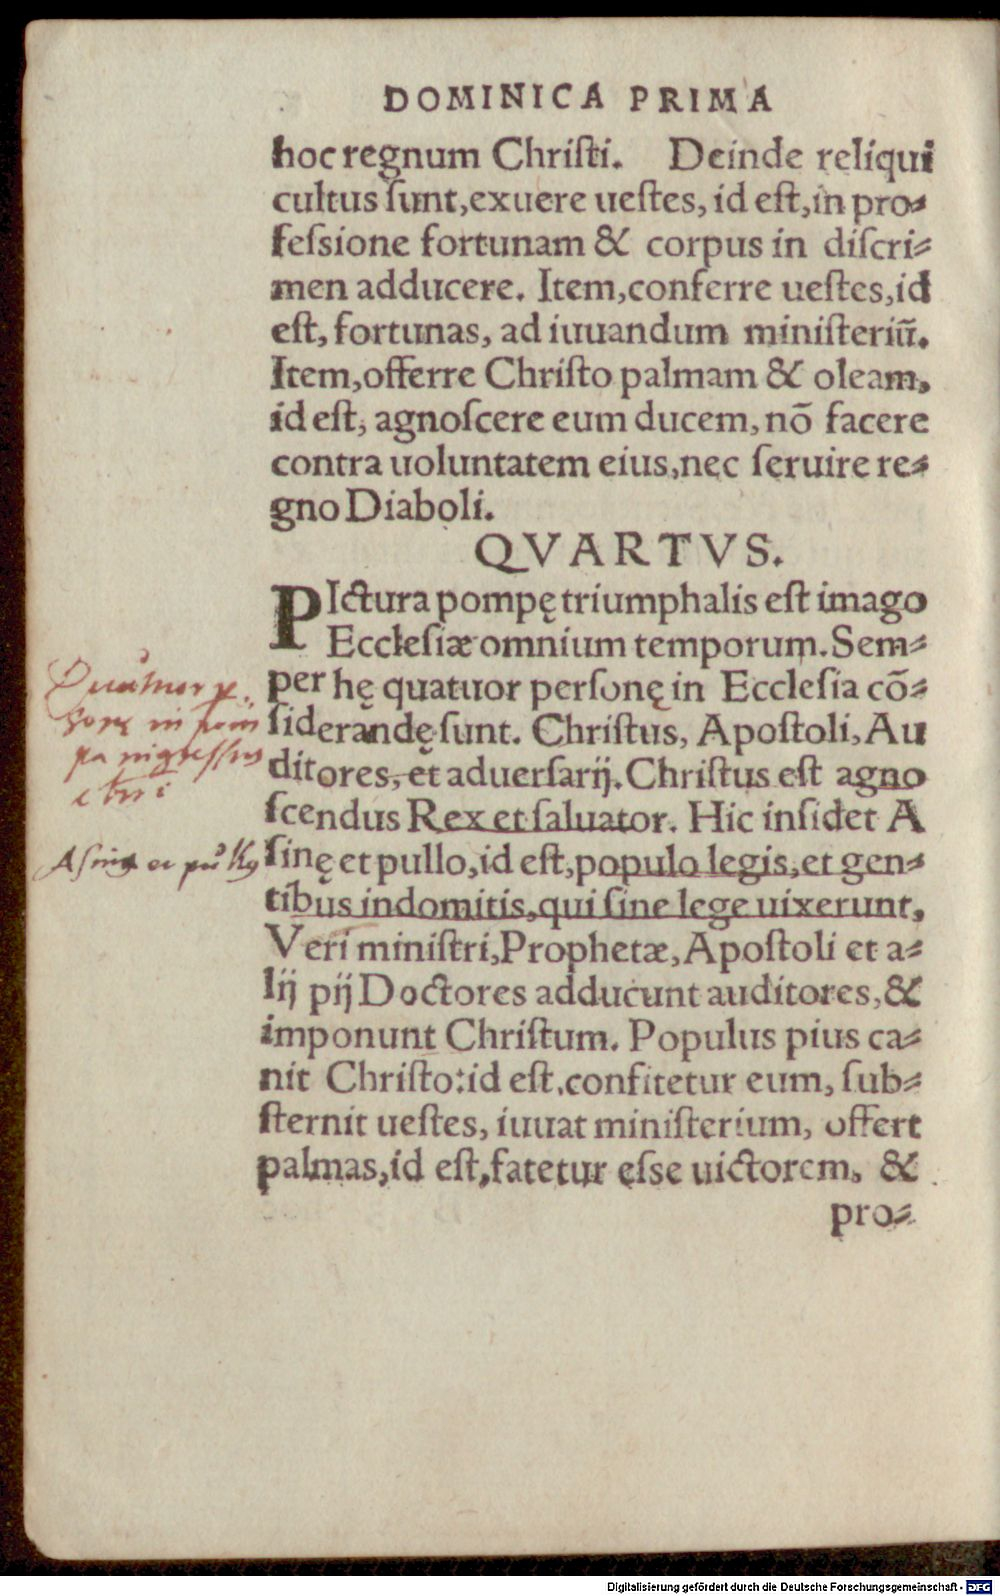 DOMINICA PRIMA
hoc regnum Chriſti. Deinde reliqui
cultus ſunt, exuere ueſtes, id eſt, in pro⸗
feſsione fortunam & corpus in diſcri⸗
men adducere. Item, conferre ueſtes, id
eſt, fortunas, ad iuuandum miniſteriũ.
Item, offerre Chriſto palmam & oleam,
id eſt, agnoſcere eum ducem, nõ facere
contra uoluntatem eius, nec ſeruire re⸗
gno Diaboli.
QVARTVS.
PIctura pompę triumphalis eſt imago
Eccleſiæ omnium temporum. Sem⸗
per hę quatuor perſonę in Eccleſia cõ⸗
ſiderandę ſunt. Chriſtus, Apoſtoli, Au
ditores, et aduerſarij. Chriſtus eſt agno
ſcendus Rex et ſaluator. Hic inſidet A
ſinę et pullo, id eſt, populo legis, et gen⸗
tibus indomitis, qui ſine lege uixerunt.
Veri miniſtri, Prophetæ, Apoſtoli et a⸗
lij pij Doctores adducunt auditores, &
imponunt Chriſtum. Populus pius ca⸗
nit Chriſto: id eſt, confitetur eum, ſub⸗
ſternit ueſtes, iuuat miniſterium, offert
palmas, id eſt, fatetur eſse uictorem, &
pro⸗
Quatuor p
sonę in pom
pa ingressus
Asina et
Digitalisierung gefördert durch die Deutsche Forschungsgemeinschaft - DFG